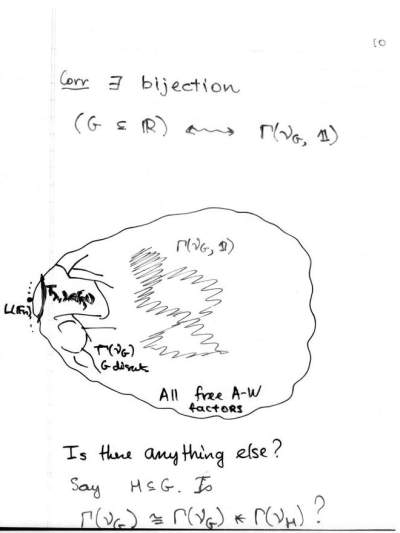 10
Corr ∃ bijection
(G ⊆ ℝ) ⟷ Γ(ν_G, 1)
Γ(ν_G, 1)
Γ(ν_G)
G discrete
All free A-W
factors
Is there anything else?
Say H⊆G. Is
Γ(ν_G) ≅ Γ(ν_G) * Γ(ν_H) ?